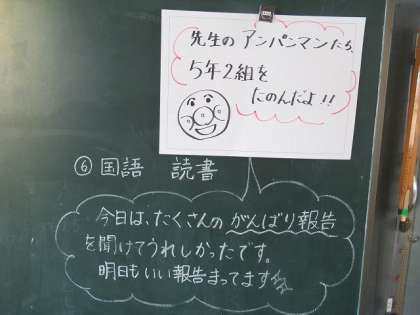 先生のアンパンマンたち、
5年2組を
たのんだよ!!
⑥国語 読書
今日は、たくさんのがんばり報告
を聞けてうれしかったです。
明日もいい報告まってます